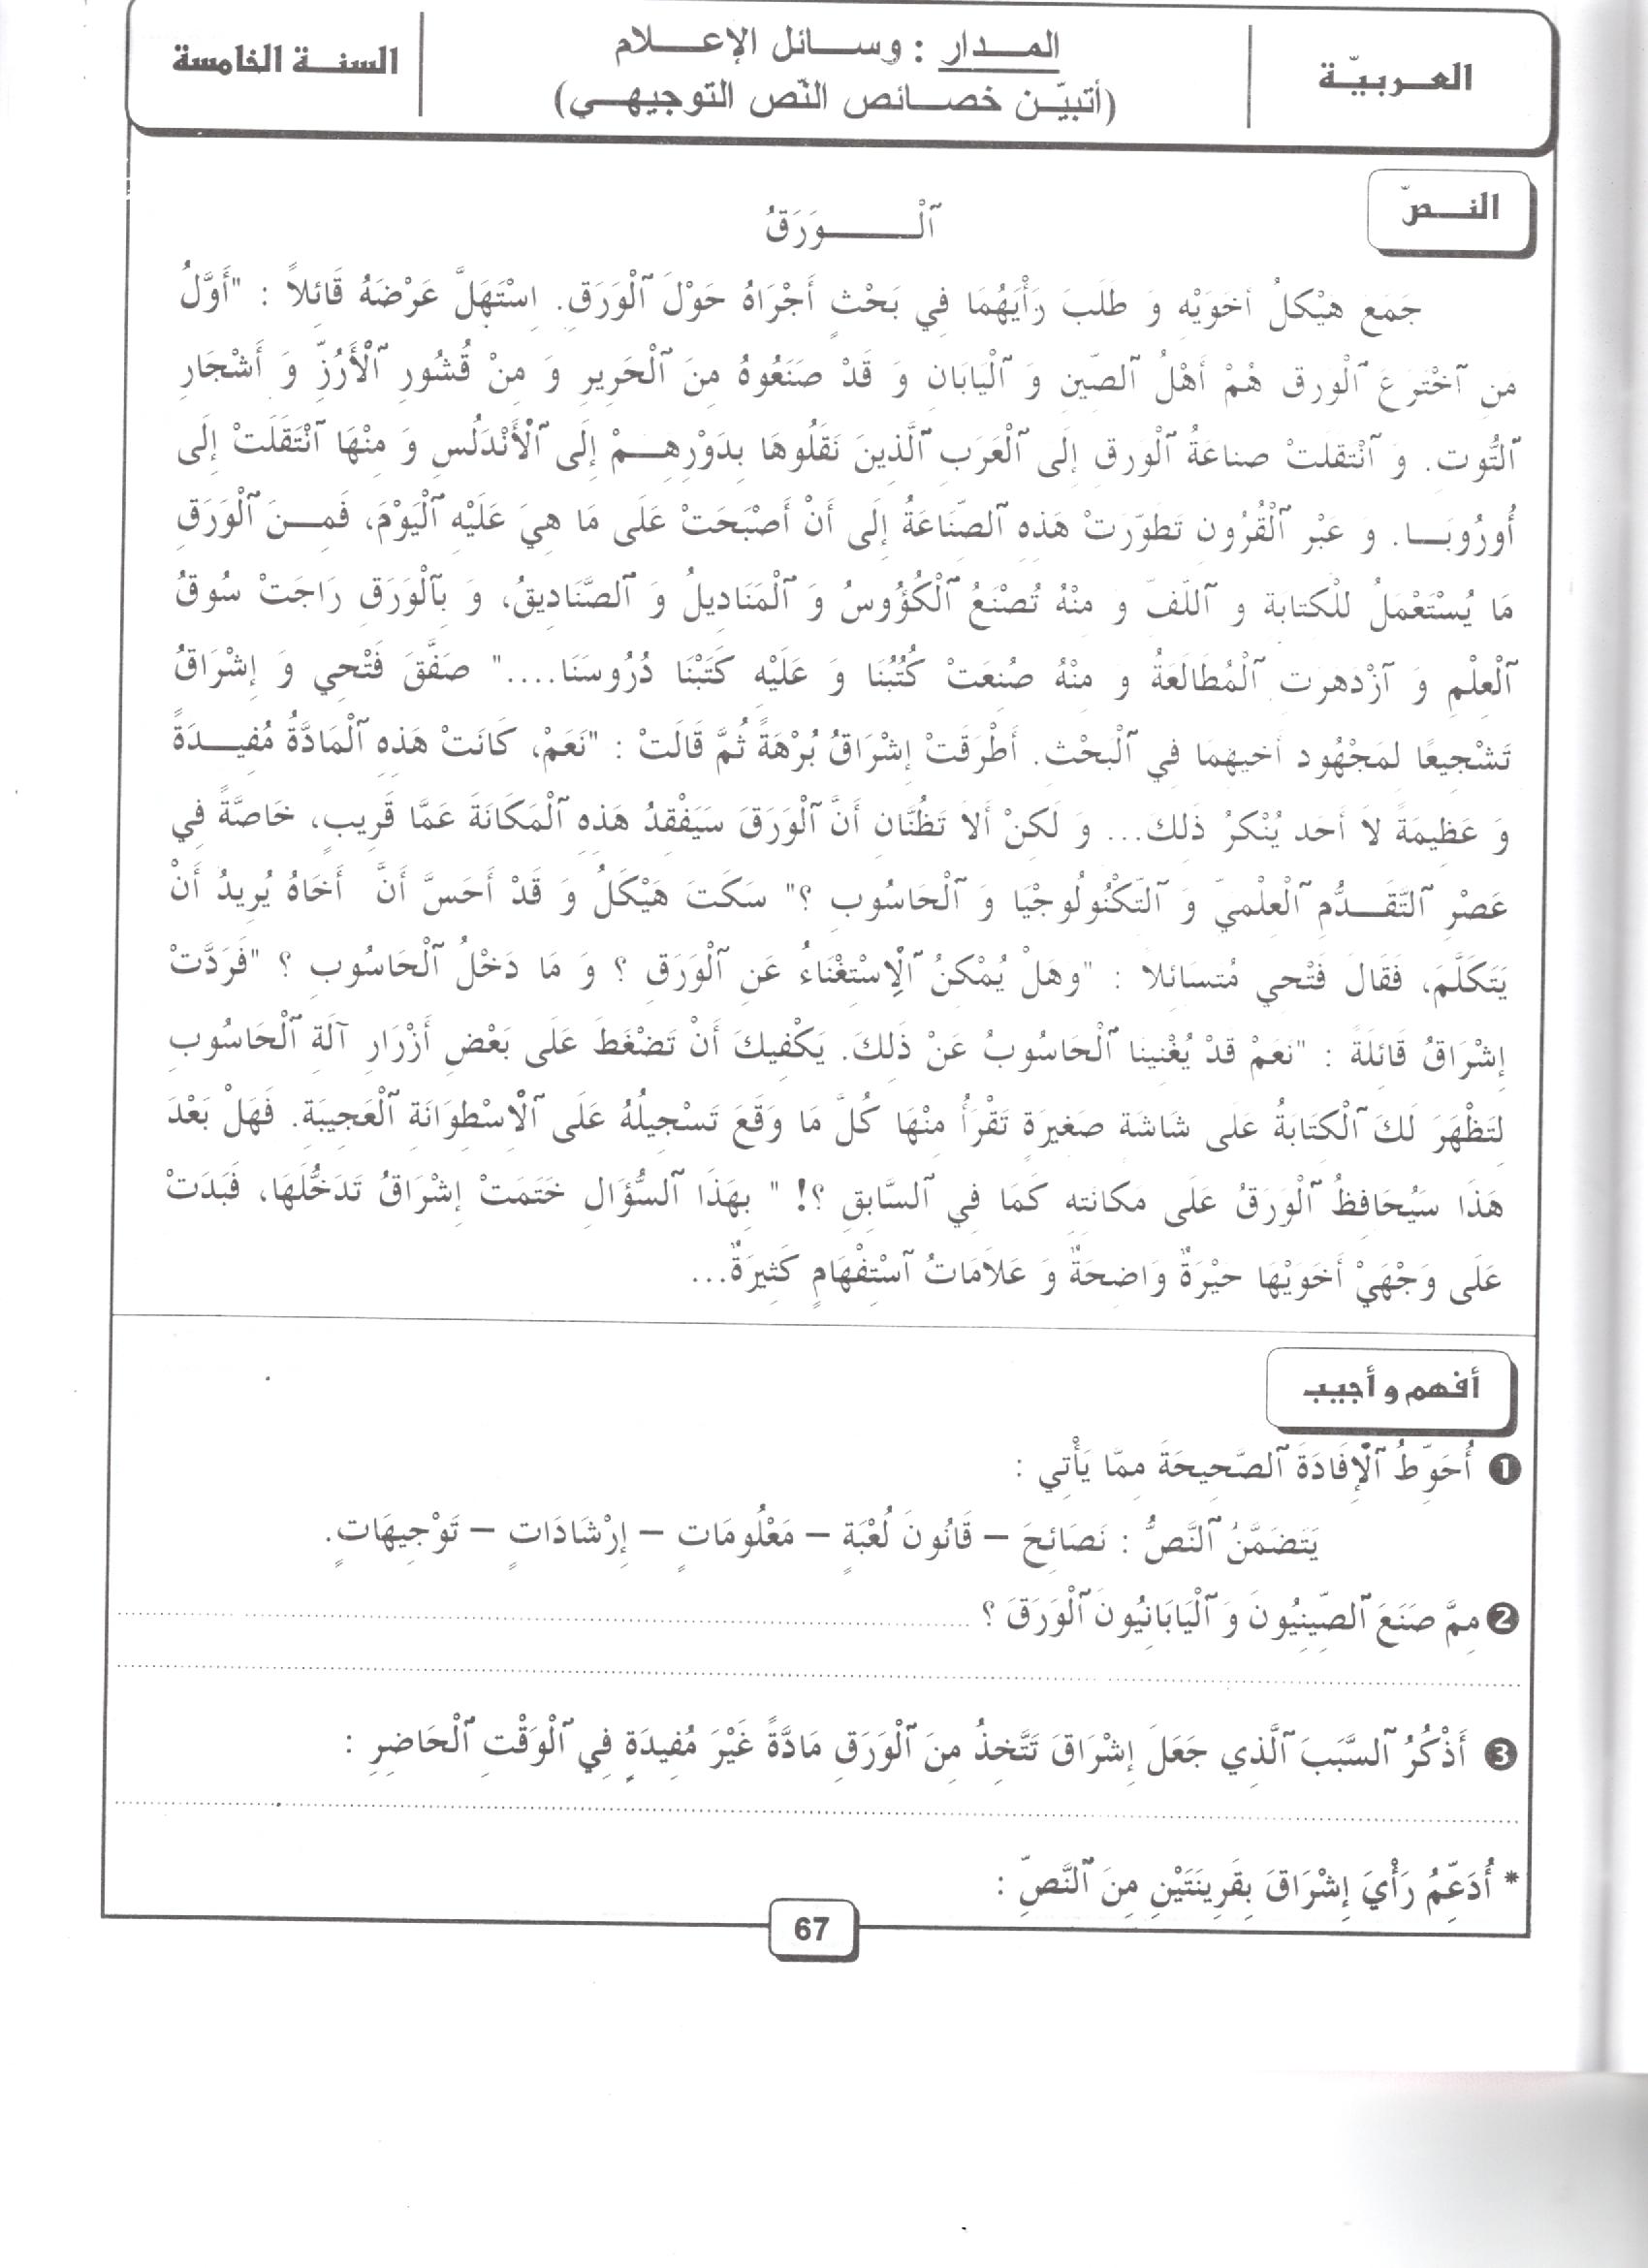 العـربيـّة
المـدار : وسـائل الإعـلام
(أتبيّـن خصـائص النّص التوجيهـي)
السنـة الخامسة
النـصّ
ٱلْـوَرَقُ
جَمَعَ هَيْكَلُ أَخَوَيْهِ وَ طَلَبَ رَأْيَهُمَا فِي بَحْثٍ أَجْرَاهُ حَوْلَ ٱلْوَرَقِ. اِسْتَهَلَّ عَرْضَهُ قَائِلاً : "أَوَّلُ
مَنِ ٱخْتَرَعَ ٱلْوَرَقَ هُمْ أَهْلُ ٱلصِّينِ وَ ٱلْيَابَانِ وَ قَدْ صَنَعُوهُ مِنَ ٱلْحَرِيرِ وَ مِنْ قُشُورِ ٱلْأَرُزِّ وَ أَشْجَارِ
ٱلتُّوتِ. وَ ٱنْتَقَلَتْ صِنَاعَةُ ٱلْوَرَقِ إِلَى ٱلْعَرَبِ ٱلَّذِينَ نَقَلُوهَا بِدَوْرِهِـمْ إِلَى ٱلْأَنْدَلُسِ وَ مِنْهَا ٱنْتَقَلَتْ إِلَى
أُورُوبَـا. وَ عَبْرَ ٱلْقُرُونِ تَطَوَّرَتْ هَذِهِ ٱلصِّنَاعَةُ إِلَى أَنْ أَصْبَحَتْ عَلَى مَا هِيَ عَلَيْهِ ٱلْيَوْمَ، فَمِـنَ ٱلْوَرَقِ
مَا يُسْتَعْمَلُ لِلْكِتَابَةِ وَ ٱللَّفِّ وَ مِنْهُ تُصْنَعُ ٱلْكُؤُوسُ وَ ٱلْمَنَادِيلُ وَ ٱلصَّنَادِيقُ، وَ بِٱلْوَرَقِ رَاجَتْ سُوقُ
ٱلْعِلْمِ وَ ٱزْدَهَرَتِ ٱلْمُطَالَعَةُ وَ مِنْهُ صُنِعَتْ كُتُبُنَا وَ عَلَيْهِ كَتَبْنَا دُرُوسَنَا...." صَفَّقَ فَتْحِي وَ إِشْرَاقُ
تَشْجِيعًا لِمَجْهُودِ أَخِيهِمَا فِي ٱلْبَحْثِ. أَطْرَقَتْ إِشْرَاقُ بُرْهَةً ثُمَّ قَالَتْ : "نَعَمْ، كَانَتْ هَذِهِ ٱلْمَادَّةُ مُفِيـدَةً
وَ عَظِيمَةً لاَ أَحَدَ يُنْكِرُ ذَلِكَ... وَ لَكِنْ أَلاَ تَظُنَّانِ أَنَّ ٱلْوَرَقَ سَيَفْقِدُ هَذِهِ ٱلْمَكَانَةَ عَمَّا قَرِيبٍ، خَاصَّةً فِي
عَصْرِ ٱلتَّقَـدُّمِ ٱلْعِلْمِيِّ وَ ٱلتِّكْنُولُوجْيَا وَ ٱلْحَاسُوبِ ؟" سَكَتَ هَيْكَلُ وَ قَدْ أَحَسَّ أَنَّ أَخَاهُ يُرِيدُ أَنْ
يَتَكَلَّمَ، فَقَالَ فَتْحِي مُتَسَائِلاً : "وَهَلْ يُمْكِنُ ٱلْاِسْتِغْنَاءُ عَنِ ٱلْوَرَقِ ؟ وَ مَا دَخْلُ ٱلْحَاسُوبِ ؟ "فَرَدَّتْ
إِشْرَاقُ قَائِلَةً : "نَعَمْ قَدْ يُغْنِينَا ٱلْحَاسُوبُ عَنْ ذَلِكَ. يَكْفِيكَ أَنْ تَضْغَطَ عَلَى بَعْضِ أَزْرَارِ آلَةِ ٱلْحَاسُوبِ
لِتَظْهَرَ لَكَ ٱلْكِتَابَةُ عَلَى شَاشَةٍ صَغِيرَةٍ تَقْرَأُ مِنْهَا كُلَّ مَا وَقَعَ تَسْجِيلُهُ عَلَى ٱلْاِسْطِوَانَةِ ٱلْعَجِيبَةِ. فَهَلْ بَعْدَ
هَذَا سَيُحَافِظُ ٱلْوَرَقُ عَلَى مَكَانَتِهِ كَمَا فِي ٱلسَّابِقِ ؟! " بِهَذَا ٱلسُّؤَالِ خَتَمَتْ إِشْرَاقُ تَدَخُّلَهَا، فَبَدَتْ
عَلَى وَجْهَيْ أَخَوَيْهَا حَيْرَةٌ وَاضِحَةٌ وَ عَلاَمَاتُ ٱسْتِفْهَامٍ كَثِيرَةٌ...
أفهم و أجيب
1 أُحَوِّطُ ٱلْإِفَادَةَ ٱلصَّحِيحَةَ مِمَّا يَأْتِي :
يَتَضَمَّنُ ٱلنَّصُّ : نَصَائِحَ – قَانُونَ لُعْبَةٍ – مَعْلُومَاتٍ – إِرْشَادَاتٍ – تَوْجِيهَاتٍ.
2 مِمَّ صَنَعَ ٱلصِّينِيُّونَ وَ ٱلْيَابَانِيُّونَ ٱلْوَرَقَ ؟
3 أَذْكُرُ ٱلسَّبَبَ ٱلَّذِي جَعَلَ إِشْرَاقَ تَتَّخِذُ مِنَ ٱلْوَرَقِ مَادَّةً غَيْرَ مُفِيدَةٍ فِي ٱلْوَقْتِ ٱلْحَاضِرِ :
* أُدَعِّمُ رَأْيَ إِشْرَاقَ بِقَرِينَتَيْنِ مِنَ ٱلنَّصِّ :
67